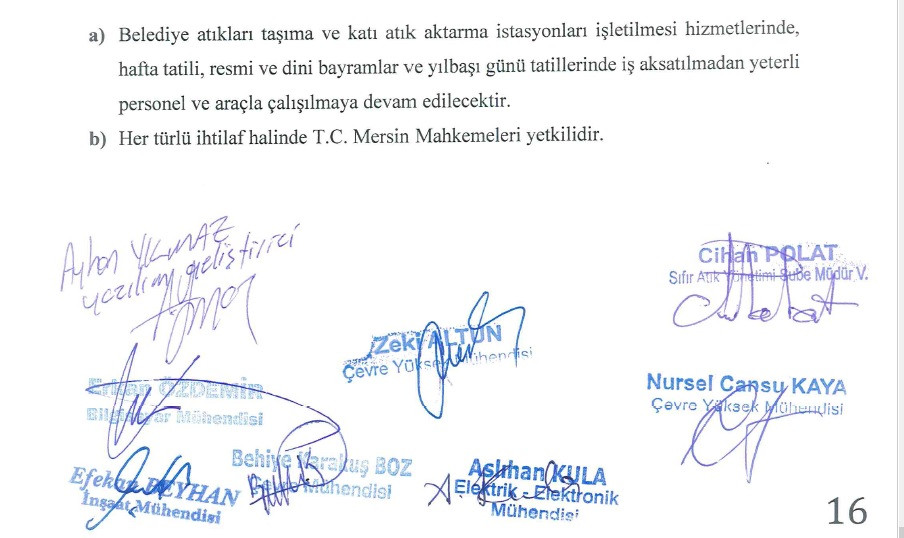 a) Belediye atıkları taşıma ve katı atık aktarma istasyonları işletilmesi hizmetlerinde,
hafta tatili, resmi ve dini bayramlar ve yılbaşı günü tatillerinde iş aksatılmadan yeterli
personel ve araçla çalışılmaya devam edilecektir.
b) Her türlü ihtilaf halinde T.C. Mersin Mahkemeleri yetkilidir.
Ayhan YILMAZ
yazılım geliştirici
Cihan POLAT
Sıfır Atık Yönetimi Şube Müdür V.
Zeki ALTUN
Çevre Yüksek Mühendisi
Erkan ÖZDEMİR
Bilgisayar Mühendisi
Nursel Cansu KAYA
Çevre Yüksek Mühendisi
Behiye Karakuş BOZ
Mühendisi
Efekan BEYHAN
İnşaat Mühendisi
Aslıhan KULA
Elektrik - Elektronik
Mühendisi
16